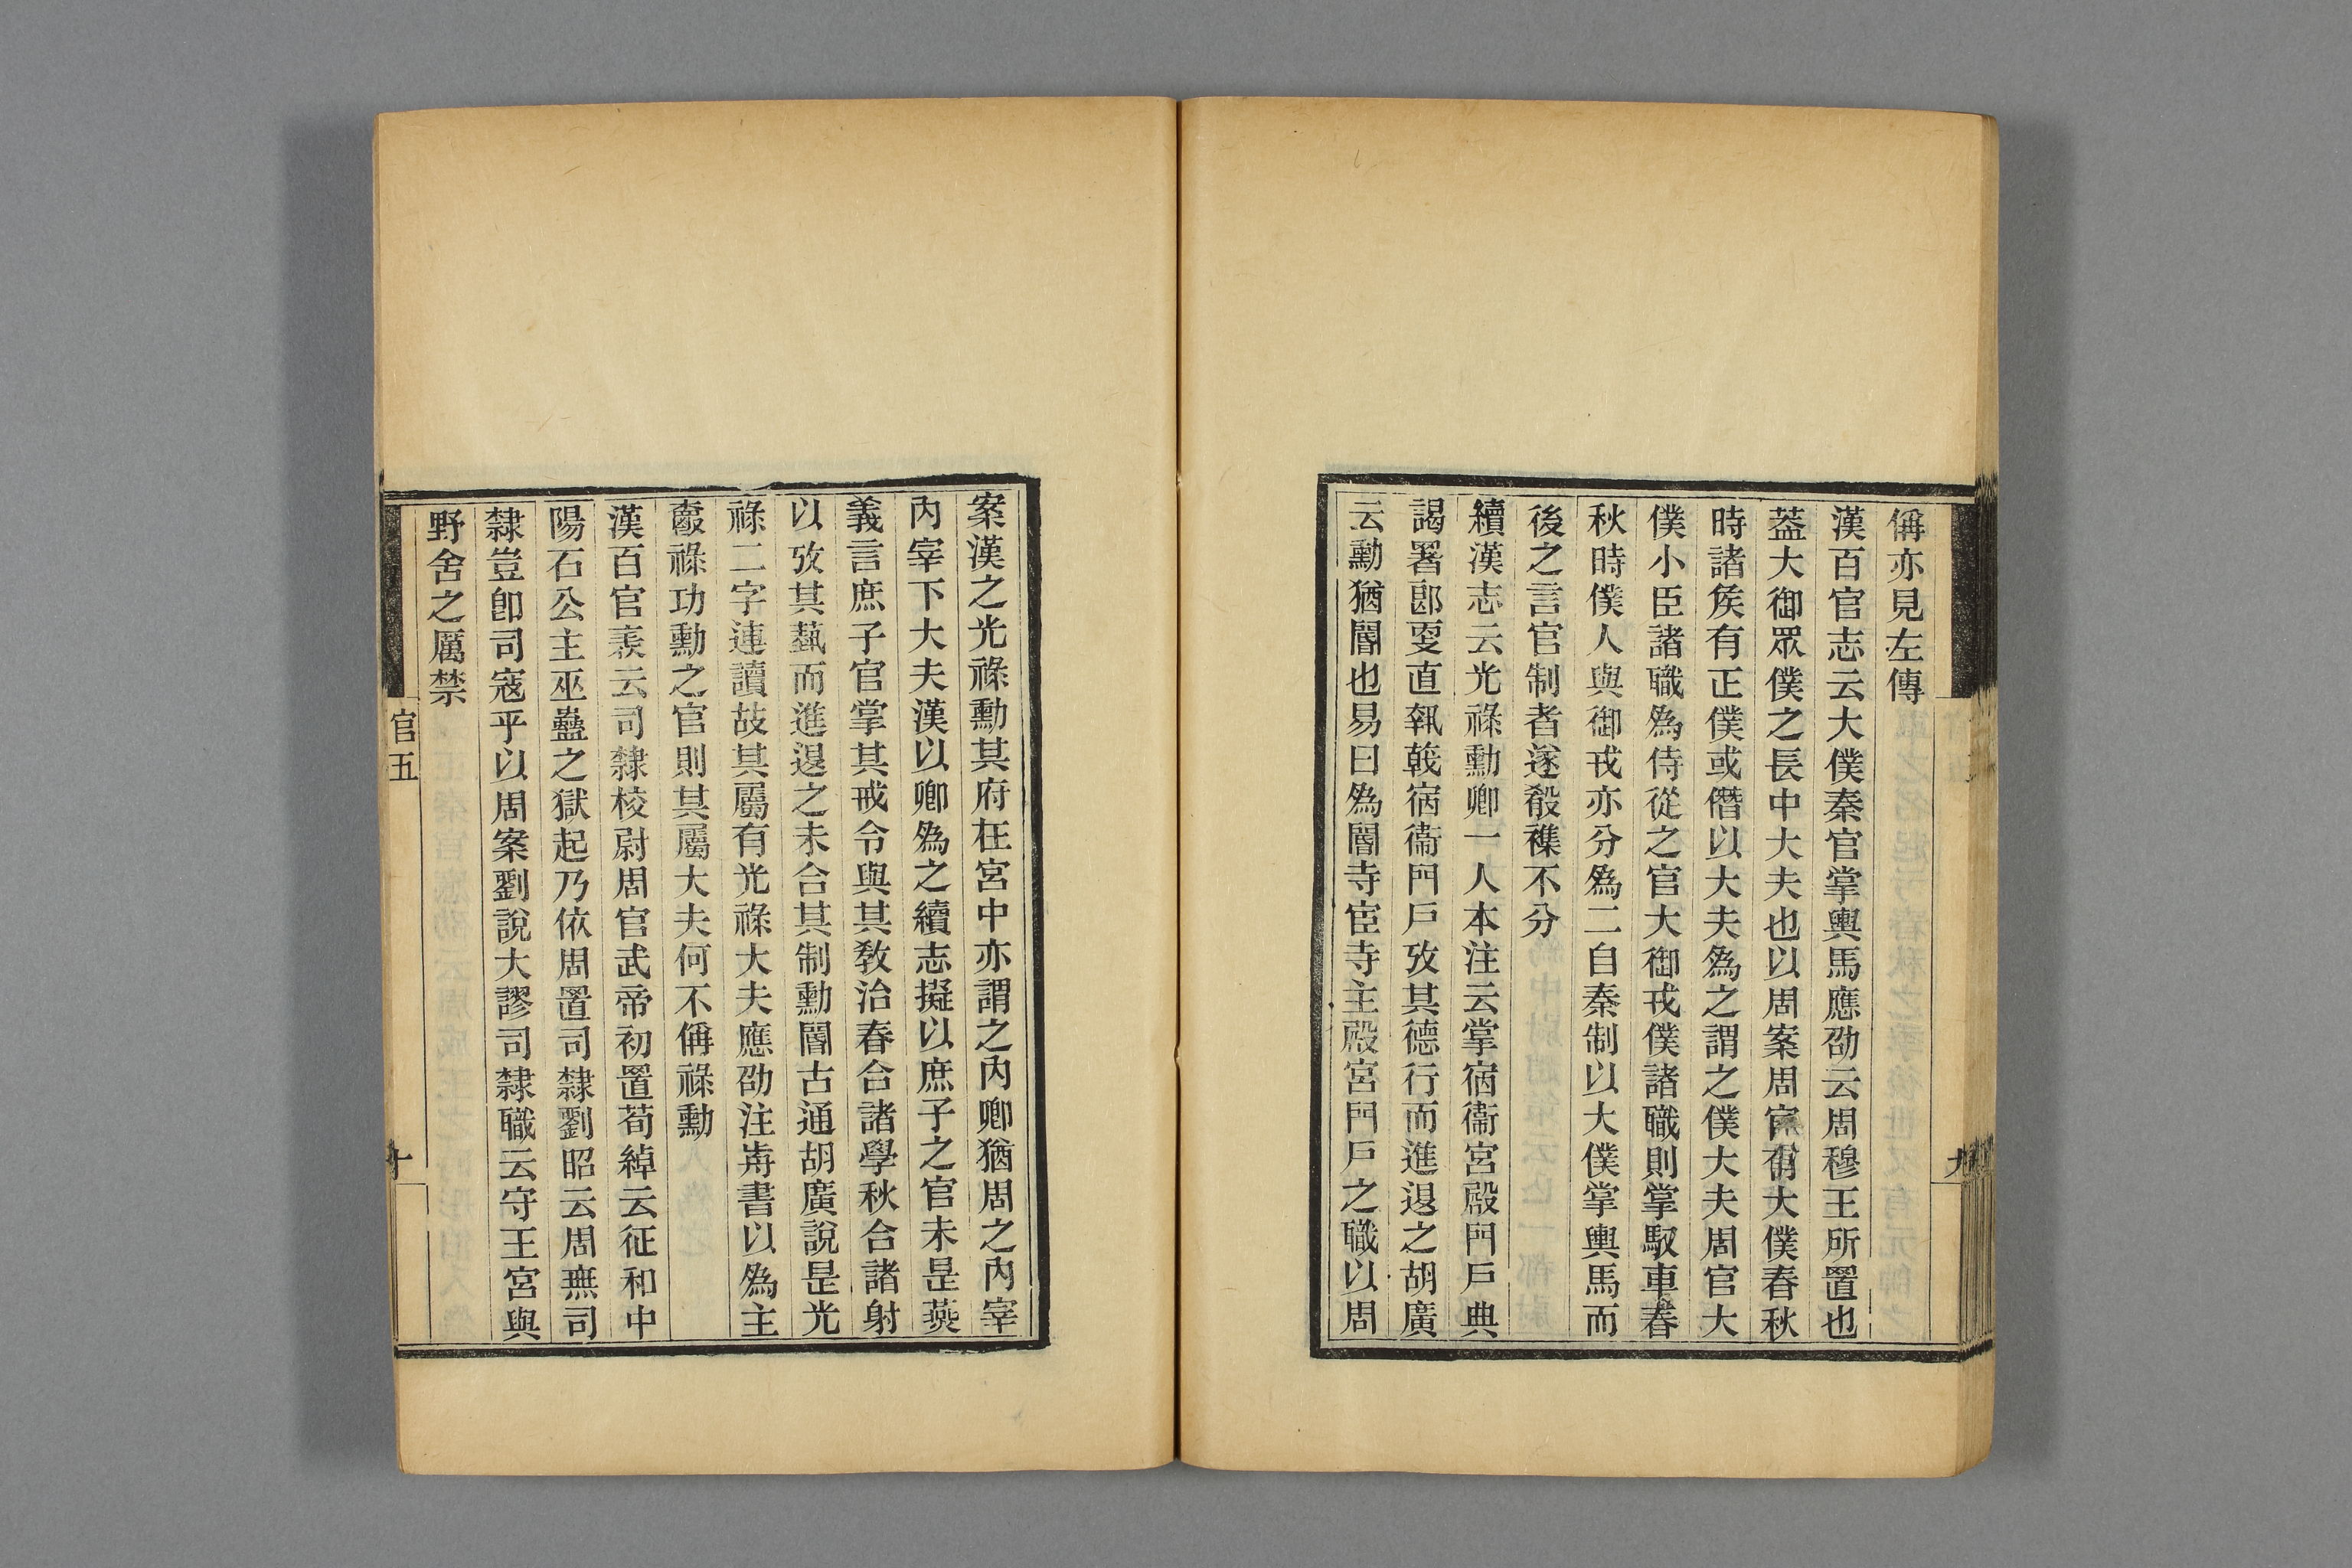 偁亦見左傳
漢百官志云大僕秦官掌輿馬應劭云周穆王所置也
葢大御眾僕之長中大夫也以周案周官有大僕春秋
時諸矦有正僕或僭以大夫爲之謂之僕大夫周官大
僕小臣諸職爲侍從之官大御戎僕諸職則掌馭車春
秋時僕人與御戎亦分爲二自秦制以大僕掌輿馬而
後之言官制者遂殽襍不分
續漢志云光祿勳卿一人本注云掌宿衞宮殿門戶典
謁署郎更直執戟宿衞門戶攷其德行而進退之胡廣
云勳猶閽也易曰爲閽寺宦寺主殿宮門戶之職以周
案漢之光祿勳其府在宮中亦謂之內卿猶周之內宰
內宰下大夫漢以卿爲之續志擬以庶子之官未是燕
義言庶子官掌其戒令與其敎治春合諸學秋合諸射
以攷其蓺而進退之未合其制勳閽古通胡廣說是光
祿二字連讀故其屬有光祿大夫應劭注漢書以爲主
爵祿功勳之官則其屬大夫何不偁祿勳
漢百官表云司隸校尉周官武帝初置荀綽云征和中
陽石公主巫蠱之獄起乃依周置司隸劉昭云周無司
隸豈卽司寇乎以周案劉說大謬司隸職云守王宮與
野舍之厲禁
官五
十